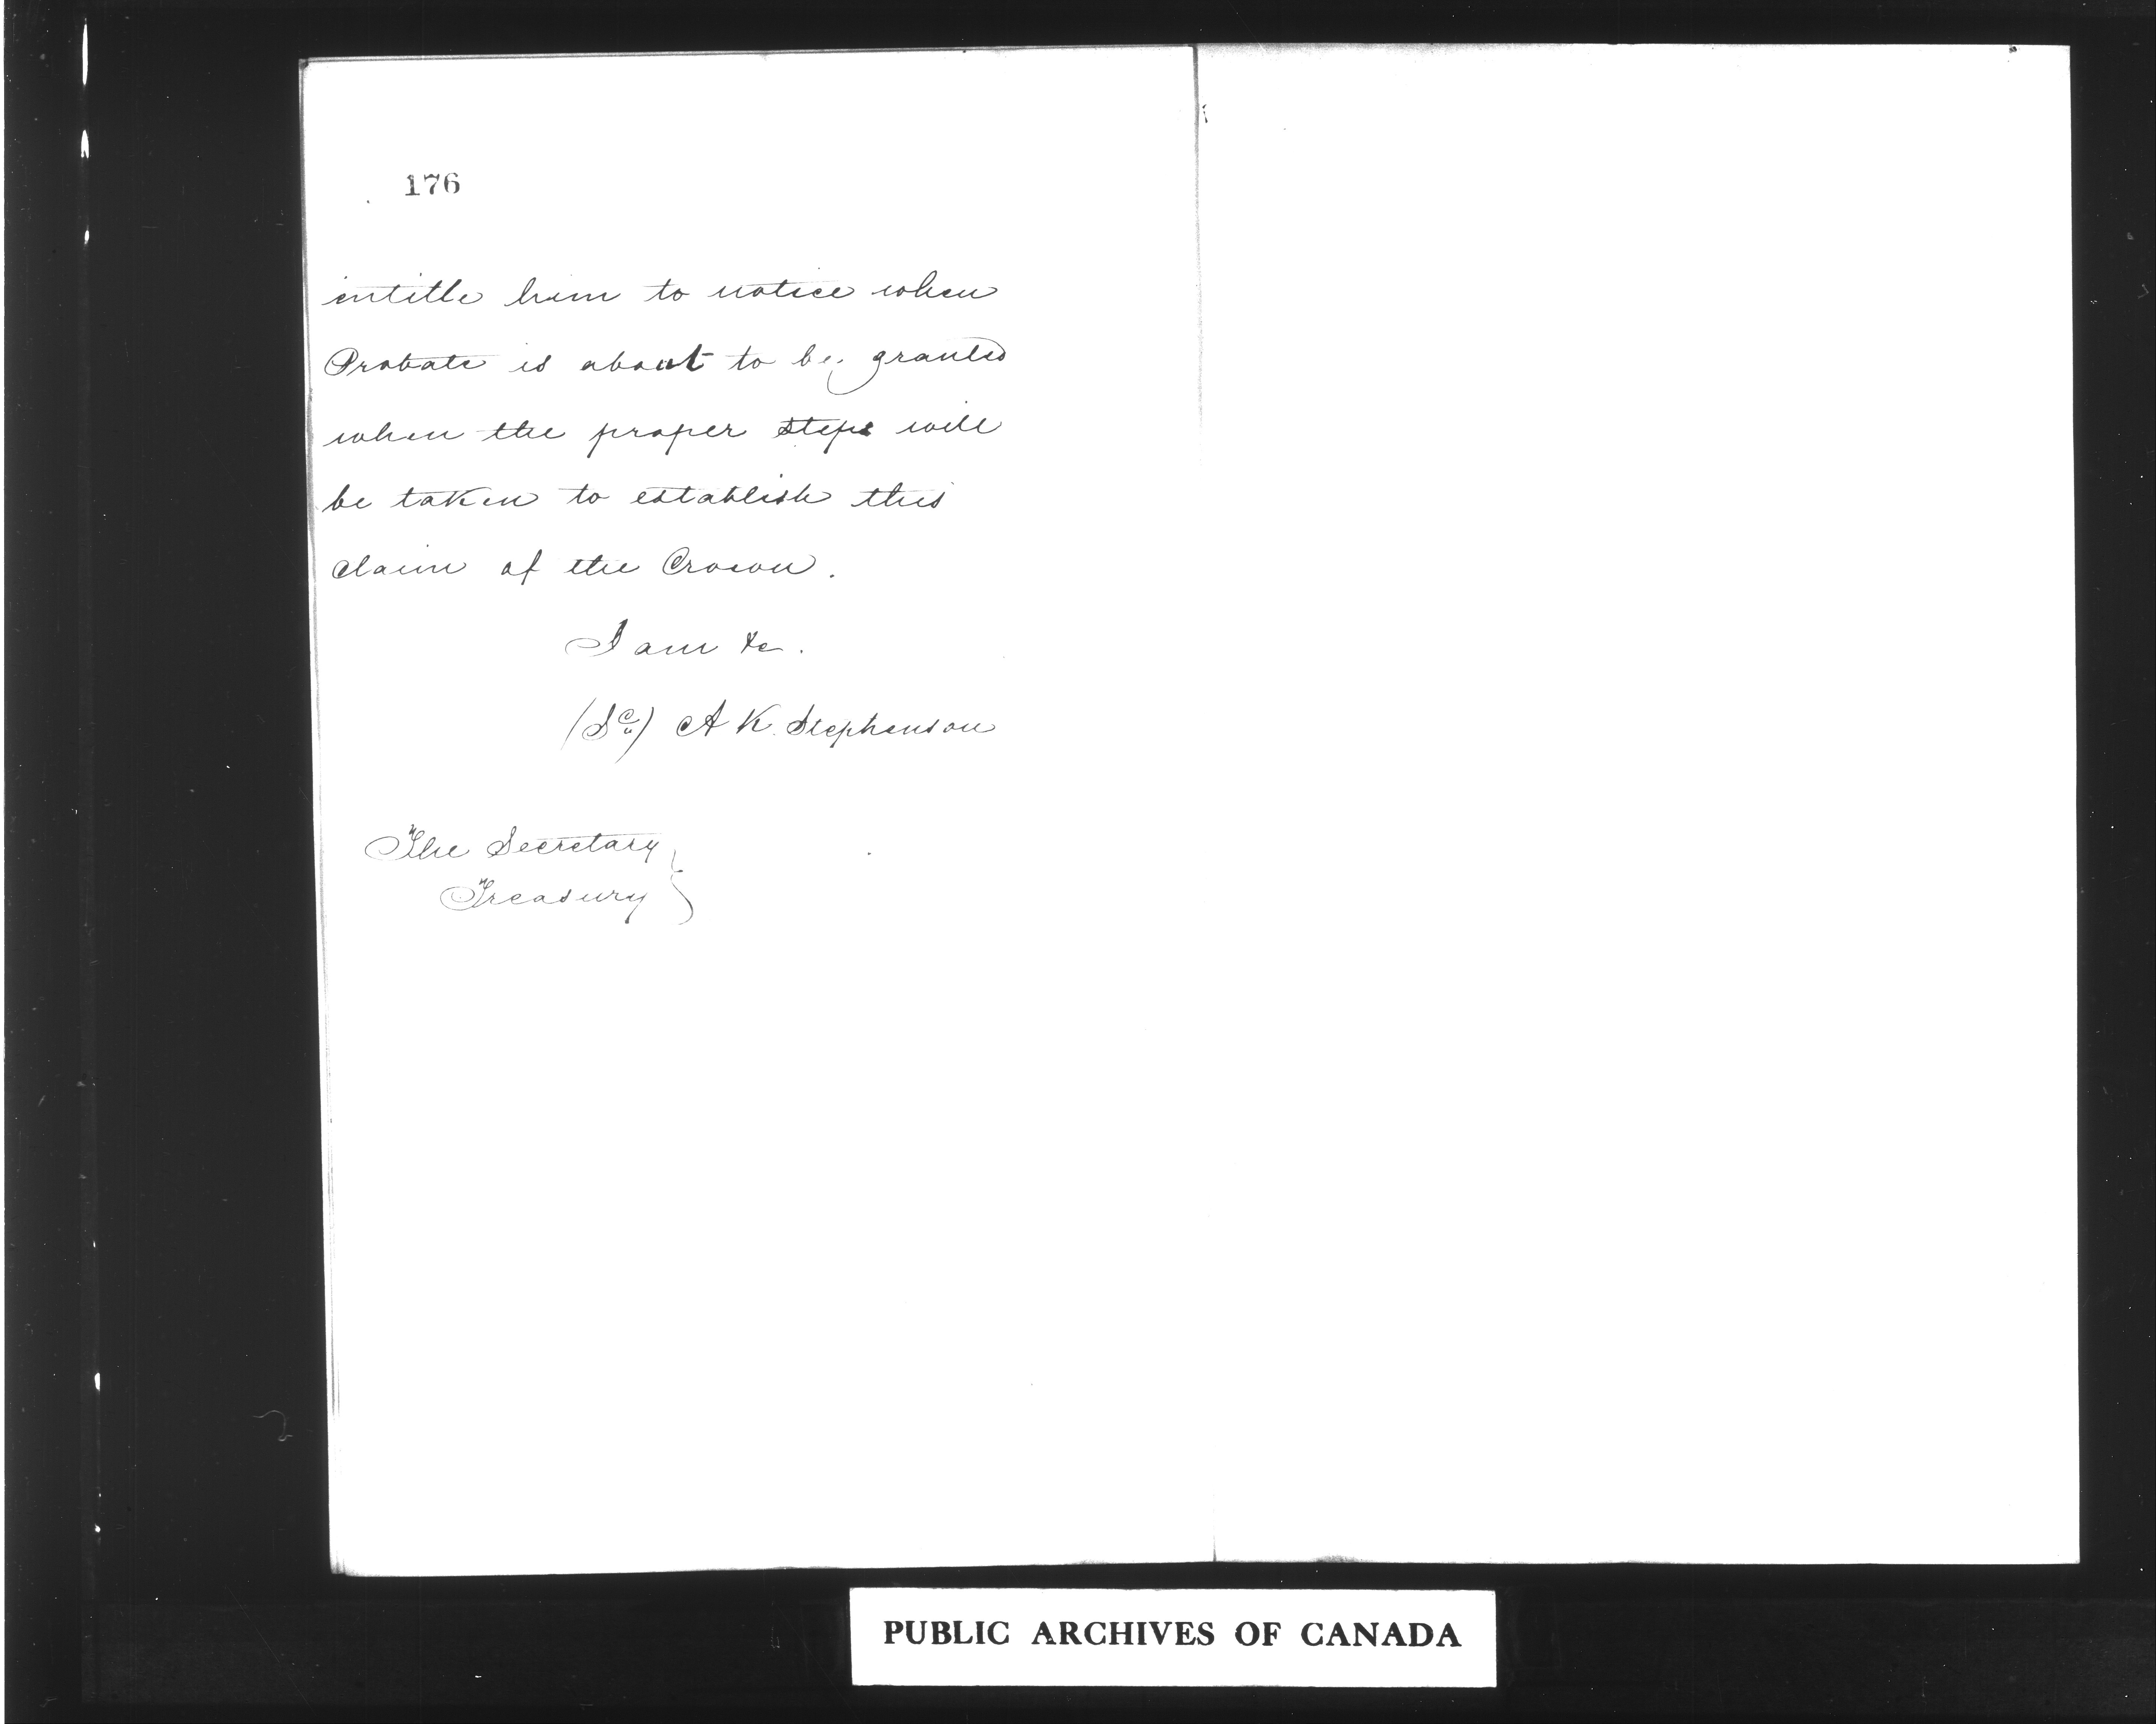 176
intitle him to notice when
Probate is about to be granted
when the proper steps will
be taken to establish this
claim of the Crown.
I am &c.
(Sd) A K. Stephenson
The Secretary
Treasury
PUBLIC ARCHIVES OF CANADA